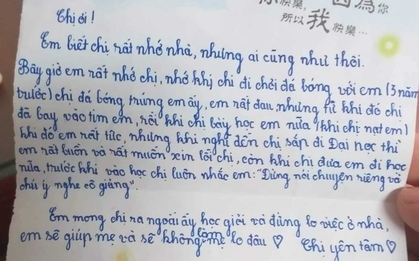 你快樂,
所以我快樂...
因為你
Chị ơi !
Em biết chị rất nhớ nhà, nhưng ai cũng như thôi.
Bây giờ em rất nhớ chị, nhớ khi chị đi chơi đá bóng với em (3 năm
trước) chị đá bóng trúng em ấy, em rất đau, nhưng từ khi đó chị
đã bay vào tim em, rồi khi chị bày học em nữa (khi chị nạt em)
khi đó em rất tức, nhưng khi nghĩ đến chị sắp đi Đại học thì
em rất buồn và rất muốn xin lỗi chị, còn khi chị đưa em đi học
nữa, trước khi vào học chị luôn nhắc em: "Đừng nói chuyện riêng và
chú ý nghe cô giảng".
Em mong chị ra ngoài ấy học giỏi và đừng lo việc ở nhà,
em sẽ giúp mẹ và sẽ không làm mẹ lo đâu ♡ Chị yên tâm ♡